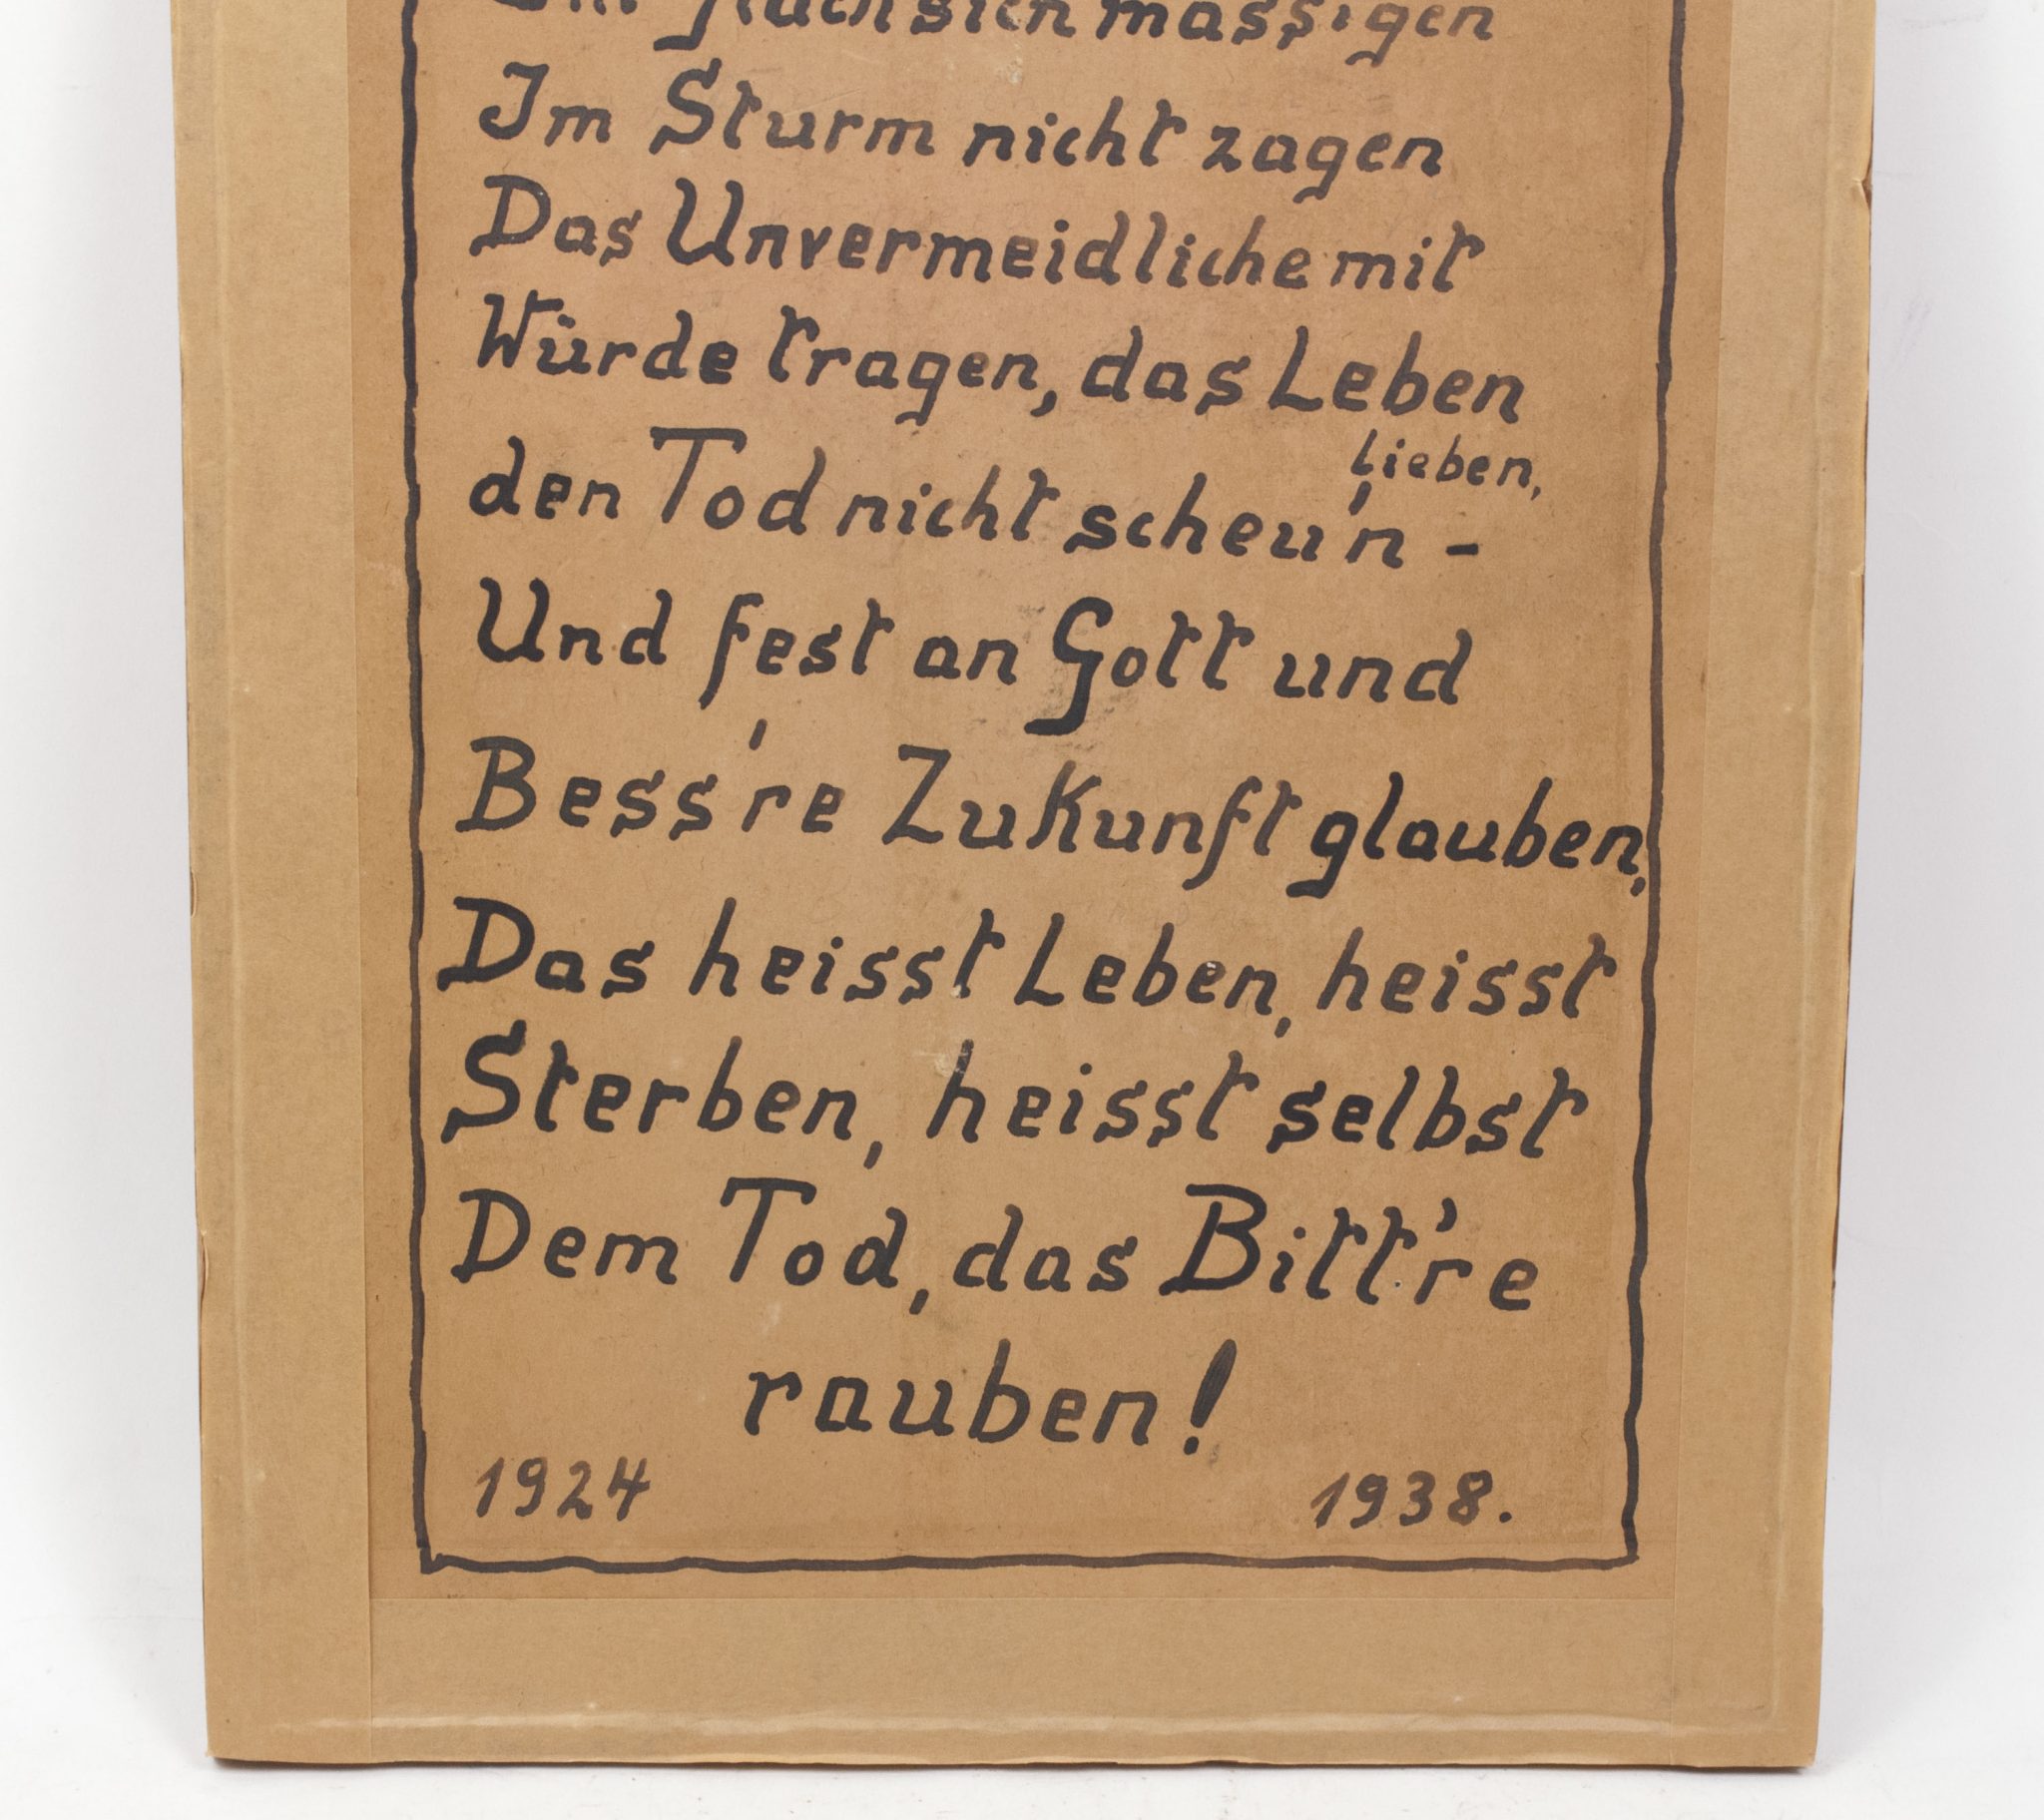 sich mässigen
Im Sturm nicht zagen
Das Unvermeidliche mit
Würde tragen, das Leben
lieben,
den Tod nicht scheu'n -
Und fest an Gott und
Bess're Zukunft glauben,
Das heisst Leben, heisst
Sterben, heisst selbst
Dem Tod, das Bitt're
rauben!
1924 1938.